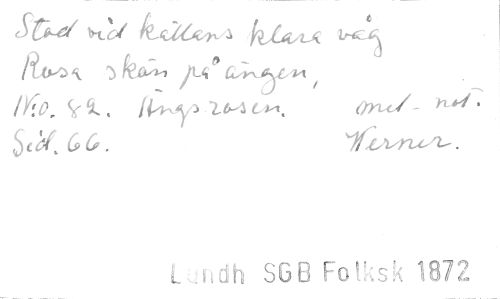 Stod vid källans klara våg
Rosa skön på ängen,
No. 82. Ängsrosen. mel-not.
Sid. 66. Werner.
Lundh SGB Folksk 1872